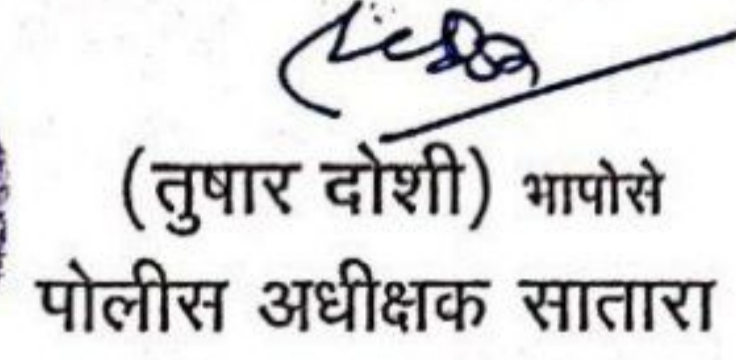 (तुषार दोशी) भापोसे
पोलीस अधीक्षक सातारा